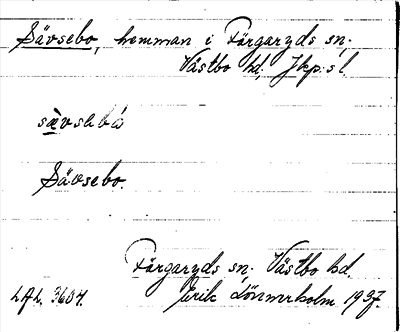 Sävsebo, hemman i Färgaryds sn,
Västbo hd, Jkp:s l.
sævsebó
Sävsebo.
Färgaryds sn, Västbo hd.
LAL. 3604. Erik Lönnerholm 1937.